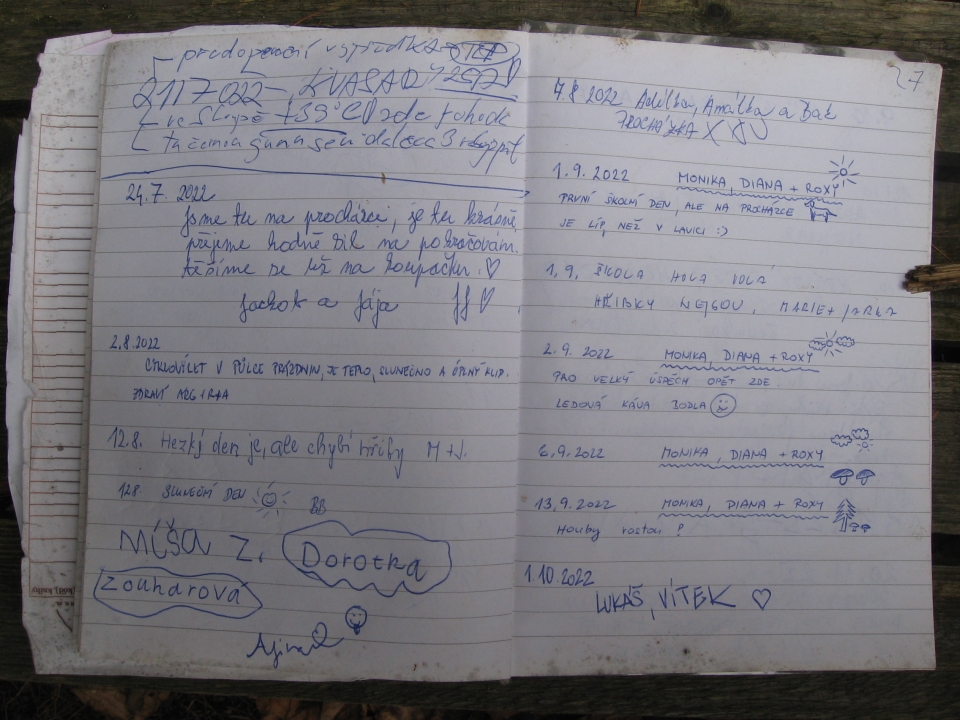 předoperační
21.7.2022
+39°C zde
24.7. 2022
Jsme tu na procházce, je tu krásně,
přejeme hodně sil na pokračování.
těšíme se též na
a Jája JJ ♡
2.8.2022
CYKLOVÝLET V PŮLCE PRÁZDNIN, JE TEPLO, SLUNEČNO A ÚPLNÝ KLID.
ZDRAVÍ
12.8. Hezký den je, ale chybí hřiby M+J.
12.8 SLUNEČNÍ DEN
BB
MÍŠA Z. Dorotka
Zouharová
27
7.8 2022 Adélka, Amálka a Bak
PROCHÁZKA
1.9.2022 MONIKA, DIANA + ROXY
PRVNÍ ŠKOLNÍ DEN, ALE NA PROCHÁZCE
JE LÍP, NEŽ V LAVICI :)
1.9. ŠKOLA HOLA VOLÁ
HŘÍBKY NEJSOU, MARIE + JARKA
2.9.2022 MONIKA, DIANA + ROXY
PRO VELKÝ ÚSPĚCH OPĚT ZDE
LEDOVÁ KÁVA BODLA
6.9.2022 MONIKA, DIANA + ROXY
13.9.2022 MONIKA, DIANA + ROXY
HOUBY rostou ?
1.10.2022
LUKÁŠ, VÍTEK ♡